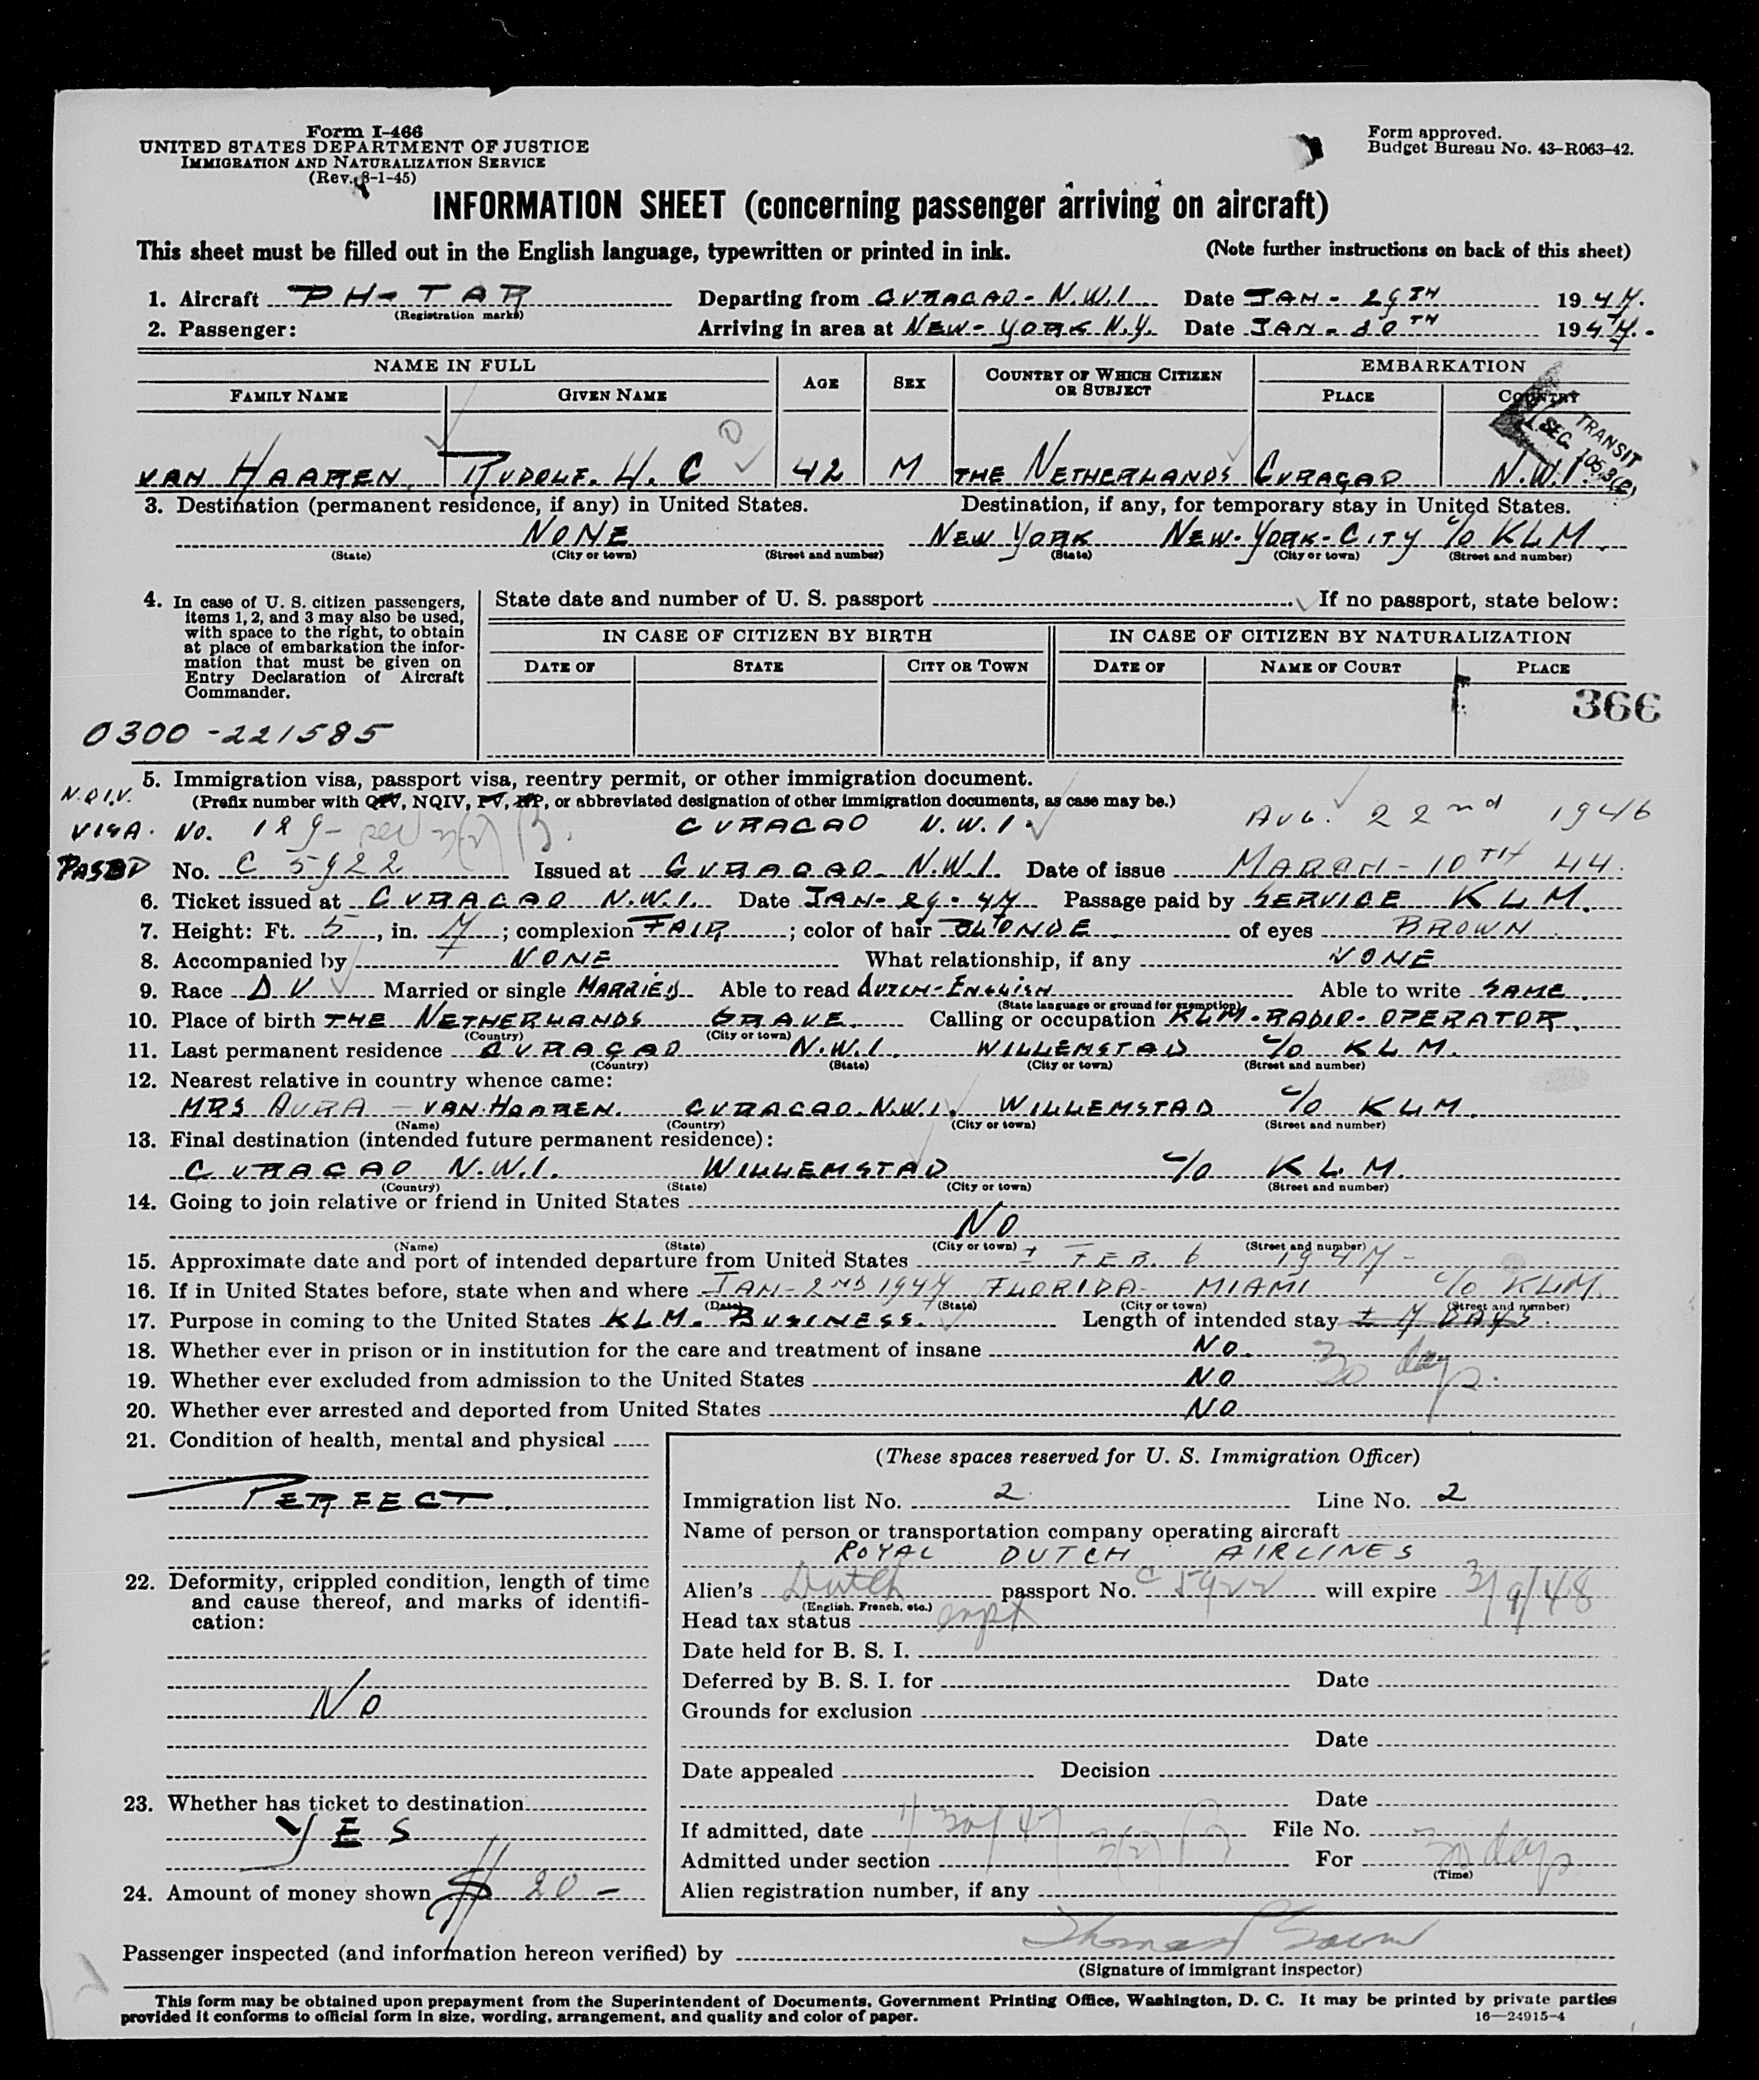 Form I-466
UNITED STATES DEPARTMENT OF JUSTICE
IMMIGRATION AND NATURALIZATION SERVICE
(Rev. 8-1-45)
Form approved.
Budget Bureau No. 43-R063-42.
INFORMATION SHEET (concerning passenger arriving on aircraft)
This sheet must be filled out in the English language, typewritten or printed in ink. (Note further instructions on back of this sheet)
1. Aircraft PH-TAR Departing from CURACAO- N.W.I. Date JAN- 29TH 1947.
(Registration marks)
2. Passenger: Arriving in area at NEW-YORK N.Y. Date JAN-30TH 1947.
NAME IN FULL AGE SEX COUNTRY OF WHICH CITIZEN OR SUBJECT EMBARKATION
FAMILY NAME GIVEN NAME PLACE COUNTRY
TRANSIT
SEC. 105.3(e)
VAN HAAREN. RUDOLF. H. C 42 M THE NETHERLANDS CURAÇAO N.W.I.
3. Destination (permanent residence, if any) in United States. Destination, if any, for temporary stay in United States.
NONE NEW YORK NEW-YORK-CITY c/o KLM.
(State) (City or town) (Street and number) (State) (City or town) (Street and number)
4. In case of U. S. citizen passengers, items 1, 2, and 3 may also be used, with space to the right, to obtain at place of embarkation the information that must be given on Entry Declaration of Aircraft Commander.
State date and number of U. S. passport If no passport, state below:
IN CASE OF CITIZEN BY BIRTH IN CASE OF CITIZEN BY NATURALIZATION
DATE OF STATE CITY OR TOWN DATE OF NAME OF COURT PLACE
366
0300-221585
5. Immigration visa, passport visa, reentry permit, or other immigration document.
(Prefix number with QIV, NQIV, PV, RP, or abbreviated designation of other immigration documents, as case may be.)
N.Q.I.V.
VISA. No. 129- CURACAO N.W.I. AUG. 22nd 1946
PASSP No. C 5922 Issued at CURACAO. N.W.I. Date of issue MARCH-10TH 44.
6. Ticket issued at CURACAO N.W.I. Date JAN-29-47 Passage paid by SERVICE KLM.
7. Height: Ft. 5, in. 7; complexion FAIR; color of hair BLONDE of eyes BROWN
8. Accompanied by NONE What relationship, if any NONE
9. Race DU Married or single MARRIED Able to read DUTCH-ENGLISH Able to write SAME.
(State language or ground for exemption)
10. Place of birth THE NETHERLANDS GRAVE. Calling or occupation KLM-RADIO-OPERATOR.
(Country) (City or town)
11. Last permanent residence CURAÇAO N.W.I. WILLEMSTAD c/o KLM.
(Country) (State) (City or town) (Street and number)
12. Nearest relative in country whence came:
MRS AURA - VAN-HAAREN. CURACAO-N.W.I. WILLEMSTAD c/o KLM.
(Name) (Country) (City or town) (Street and number)
13. Final destination (intended future permanent residence):
CURACAO N.W.I. WILLEMSTAD c/o K.L.M.
(Country) (State) (City or town) (Street and number)
14. Going to join relative or friend in United States
NO
(Name) (State) (City or town) (Street and number)
15. Approximate date and port of intended departure from United States ± FEB. 6 1947-
16. If in United States before, state when and where JAN-2ND 1947 FLORIDA- MIAMI c/o KLM.
(Date) (State) (City or town) (Street and number)
17. Purpose in coming to the United States KLM. BUSINESS. Length of intended stay ± 7 DAYS.
30 days.
18. Whether ever in prison or in institution for the care and treatment of insane NO.
19. Whether ever excluded from admission to the United States NO
20. Whether ever arrested and deported from United States NO
21. Condition of health, mental and physical
PERFECT.
22. Deformity, crippled condition, length of time and cause thereof, and marks of identification:
NO
23. Whether has ticket to destination
YES
24. Amount of money shown $ 20-
(These spaces reserved for U. S. Immigration Officer)
Immigration list No. 2 Line No. 2
Name of person or transportation company operating aircraft
ROYAL DUTCH AIRLINES
Alien's Dutch passport No. C 5922 will expire 3/9/48
(English, French, etc.)
Head tax status
Date held for B. S. I.
Deferred by B. S. I. for Date
Grounds for exclusion
Date
Date appealed Decision
Date
If admitted, date 1/30/47 File No.
Admitted under section For 30 days
(Time)
Alien registration number, if any
Passenger inspected (and information hereon verified) by Thomas
(Signature of immigrant inspector)
This form may be obtained upon prepayment from the Superintendent of Documents, Government Printing Office, Washington, D. C. It may be printed by private parties
provided it conforms to official form in size, wording, arrangement, and quality and color of paper. 16—24915-4